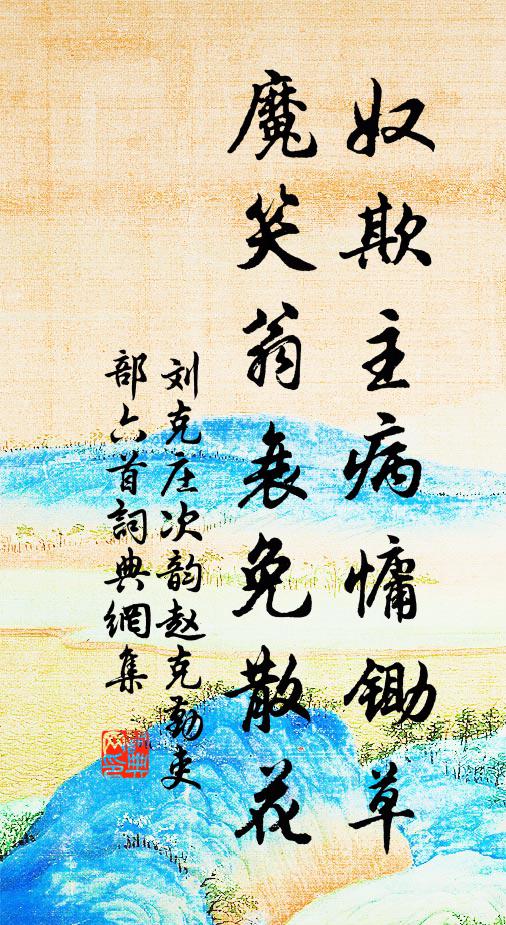 奴欺主病慵锄草
魔笑翁衰免散花
刘克庄次韵赵克勤吏
部六首詞典網集